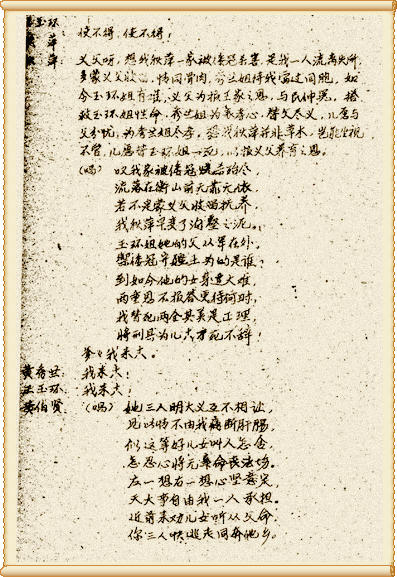 王玉环
使不得，使不得！
秋萍 义父呀，想我秋萍一家被倭寇杀害，是我一人流离失所，
多蒙义父收留，情同骨肉，秀兰姐待我当过同胞，如
今玉环姐有难，义父为报王家之恩，与民仲冤，搭
救玉环姐性命，秀兰姐为
父分忧，为秀兰姐尽孝，我秋萍并非草木，岂能坐视
不管，儿愿替玉环姐一死，以报义父养育之恩。
（唱） 叹我家被倭寇烧杀殆尽，
流落在衡山前无靠无依，
若不是蒙义父收留抚养，
我秋萍早变了沟壑之泥。
玉环姐她的父从军在外，
御倭寇守疆土为的是谁？
到如今他的女身遭大难，
两重恩不报答更待何时，
我替死两全其美是正理，
将刑具为儿 才死不辞！
爹爹我来去。
黄秀兰： 我来去！
王玉环： 我来去！
黄伯贤： （唱） 她三人明大义互不相让，
见此情不由我痛断肝肠，
似这等好儿女叫人怎舍，
怎忍心将元章命丧法场。
左一想右一想心坚意定，
天大事自由我一人承担。
近前来劝儿女听从父命，
你三人快逃走同奔他乡。